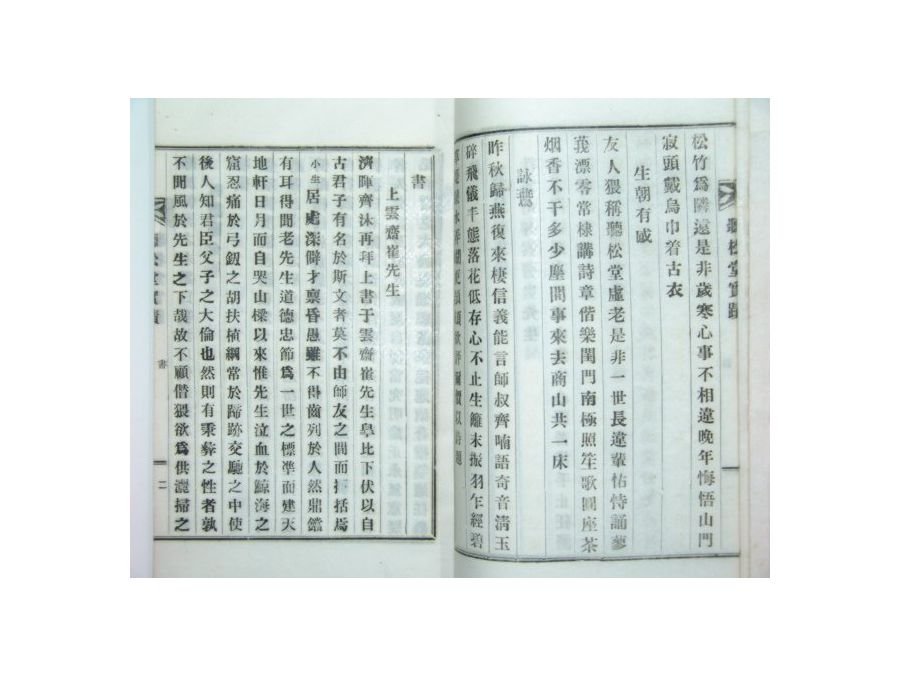 松竹爲隣遠是非歲寒心事不相違晚年悔悟山門
寂頭戴烏巾着古衣
生朝有感
友人猥稱聽松堂虛老是非一世長違輩怙恃誦蓼
莪漂零常棣講詩章偕樂閨門南極照笙歌圓座茶
烟香不干多少塵間事來去商山共一床
詠鷰
昨秋歸燕復來棲信義能言師叔齊喃語奇音淸玉
碎飛儀丰態落花低存心不止生籬末振羽乍經碧
聽松堂實蹟
書
上雲齋崔先生
濟暉齊沐再拜上書于雲齋崔先生皐比下伏以自
古君子有名於斯文者莫不由師友之間而括焉
小生居處深僻才禀昏愚雖不得齒列於人然鼎鐺
有耳得聞老先生道德忠節爲一世之標準而建天
地軒日月而自哭山樑以來惟先生泣血於鯨海之
窟忍痛於弓釼之胡扶植綱常於蹄跡交馳之中使
後人知君臣父子之大倫也然則有秉彜之性者孰
不聞風於先生之下哉故不顧僭猥欲爲供灑掃之
書
二